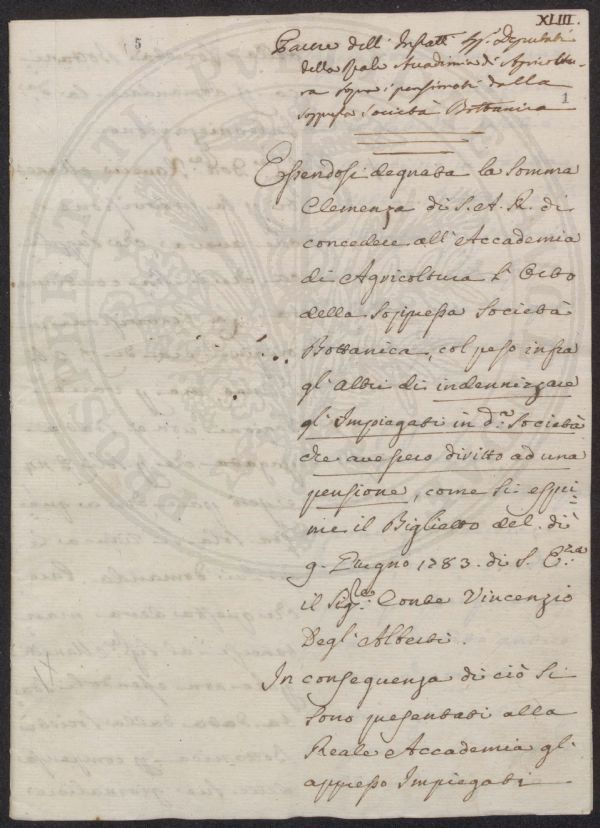 XLIII.
5
Parere dell' Infratti SS.i Deputati
della Reale Accademia di Agricoltu-
ra sopra i pensionati della
soppressa Società Bottanica
1
Essendosi degnata la somma
Clemenza di S. A. R. di
concedere all' Accademia
di Agricoltura l' Orto
della Soppressa Società
Bottanica, col peso infra
gl' altri di indennizzare
gl' Impiegati in d.a Società
che avessero diritto ad una
pensione, come si espri-
me il Biglietto del dì
9. Giugno 1783. di S. E.za
il Sig.re Conte Vincenzio
Degl' Alberti.
In conseguenza di ciò si
sono presentati alla
Reale Accademia gl'
appresso Impiegati
PROSPERITATI